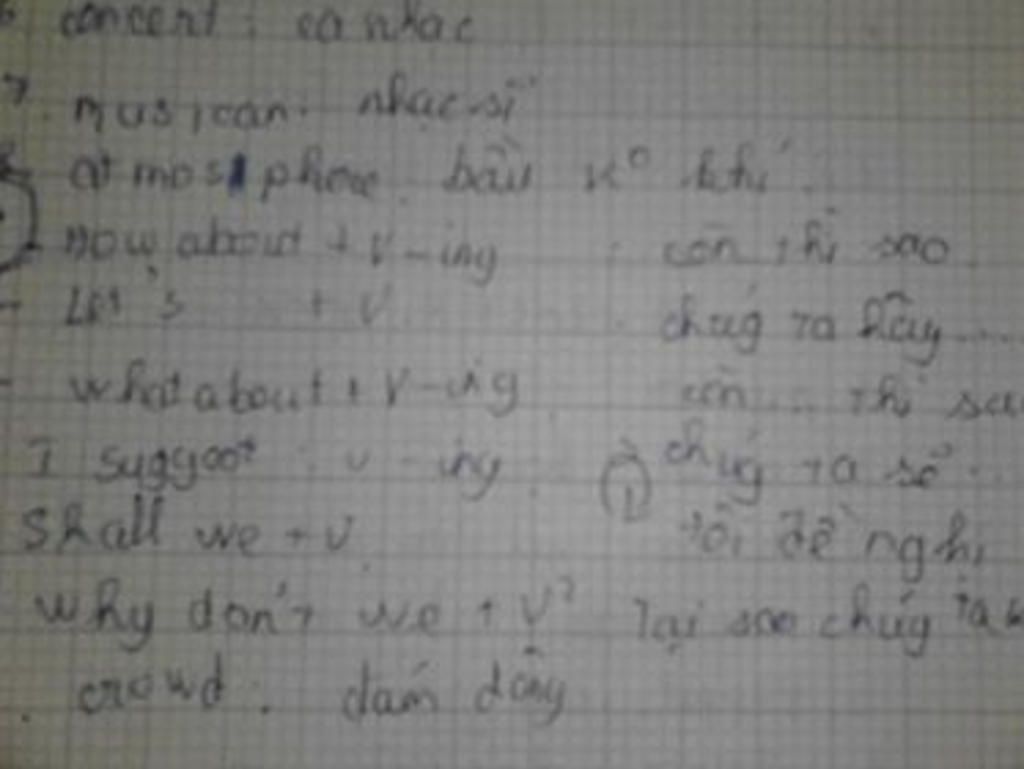 6 concert : ca nhạc
7. musican: nhạc sĩ
8. atmosphere bầu k° khí
How about + V-ing : còn thì sao
- Let's + V chúg ta hãy .....
- what about + V-ing còn ... thì sa
I suggest : V-ing ① chúg ta sẽ ..
Shall we + V tôi đề nghị
Why don't we + V? Tại sao chúg ta k
crowd : dám dông